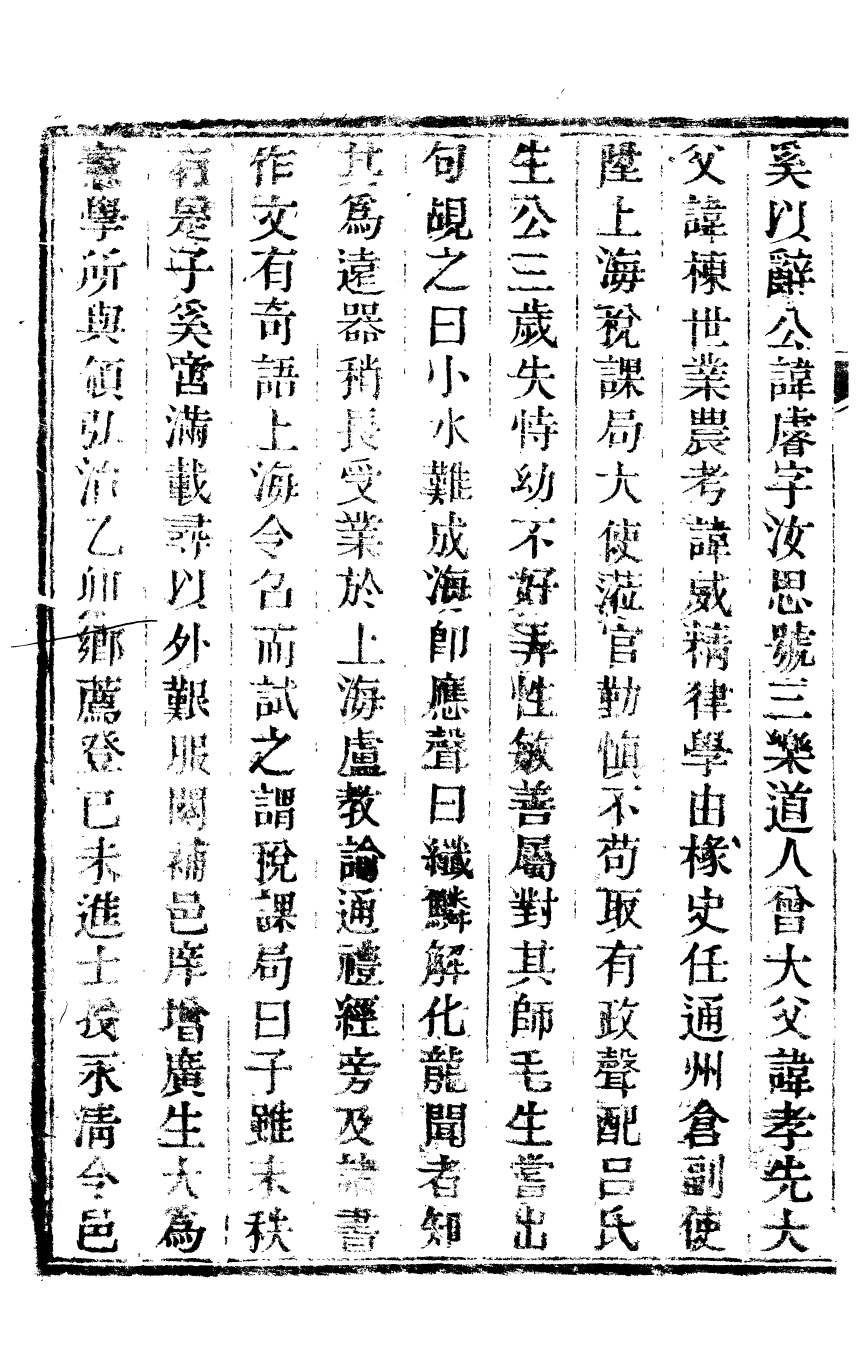 奚以辭公諱睿字汝思號三樂道人曾大父諱孝先大
父諱棟世業農考諱威精律學由椽史任通州倉副使
陞上海稅課局大使蒞官勤慎不苟取有政聲配呂氏
生公三歲失恃幼不好弄性敏善屬對其師毛生嘗出
句覘之曰小水難成海卽應聲曰纖鱗解化龍聞者知
其爲遠器稍長受業於上海盧教諭通禮經旁及諸書
作文有奇語上海令召而試之謂稅課局曰子雖未秩
有是子奚啻滿載尋以外艱服闋補邑庠增廣生大爲
憲學所與領弘治乙卯鄉薦登已未進士長永淸令邑